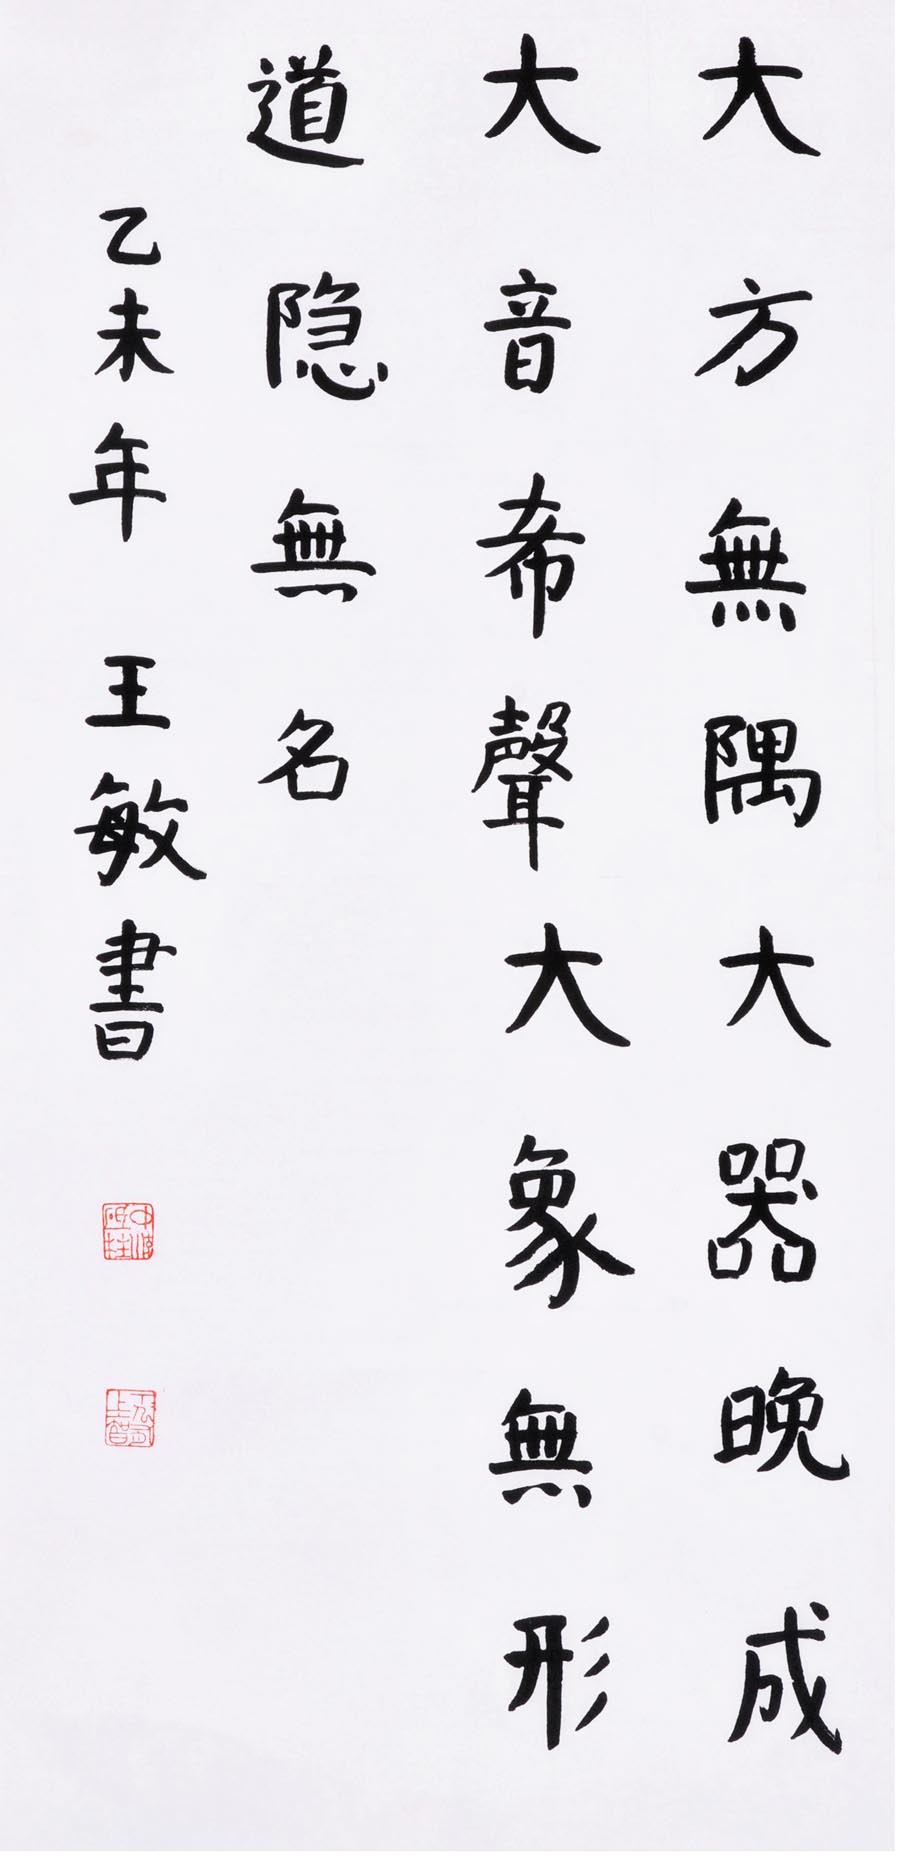 大方無隅大器晚成
大音希聲大象無形
道隐無名
乙未年 王敏書